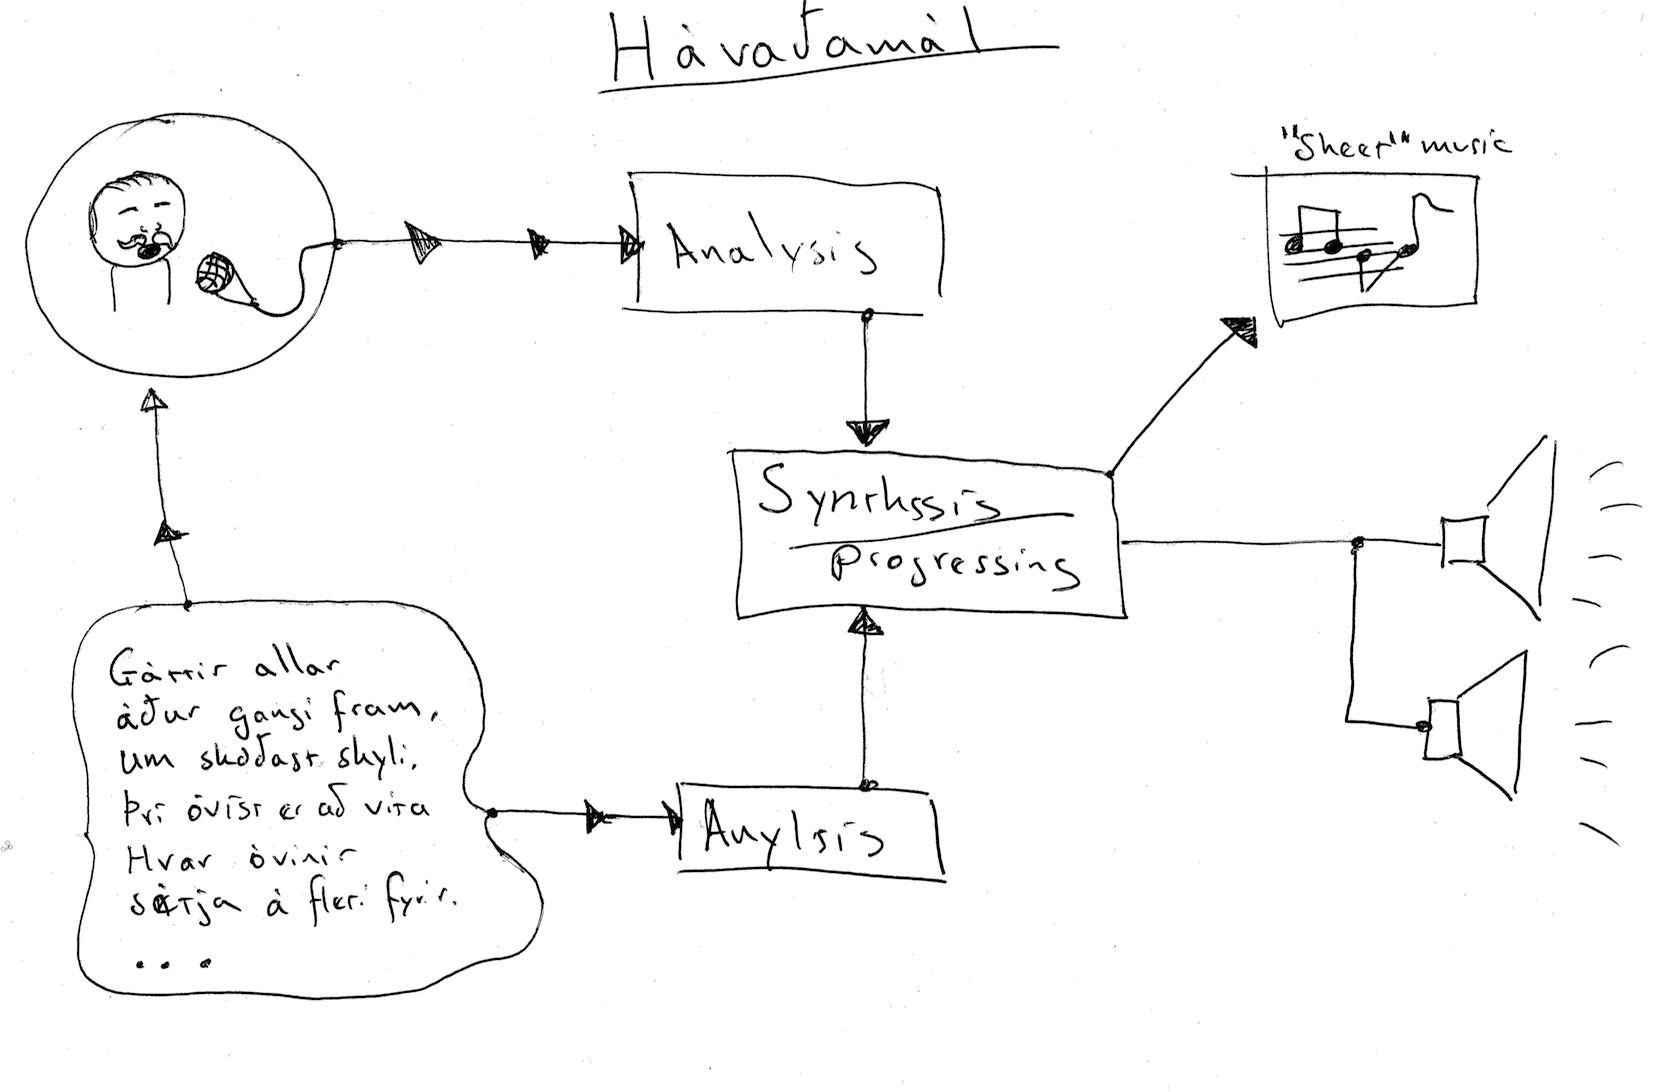 Hàvaðamàl
"Sheet" music
Analysis
Synthssis
progressing
Gàttir allar
àður gangi fram,
um skoðast skyli,
Þvi òvist er að vita
Hvar òvinir
sitja à fleti fyrir.
...
Anylsis